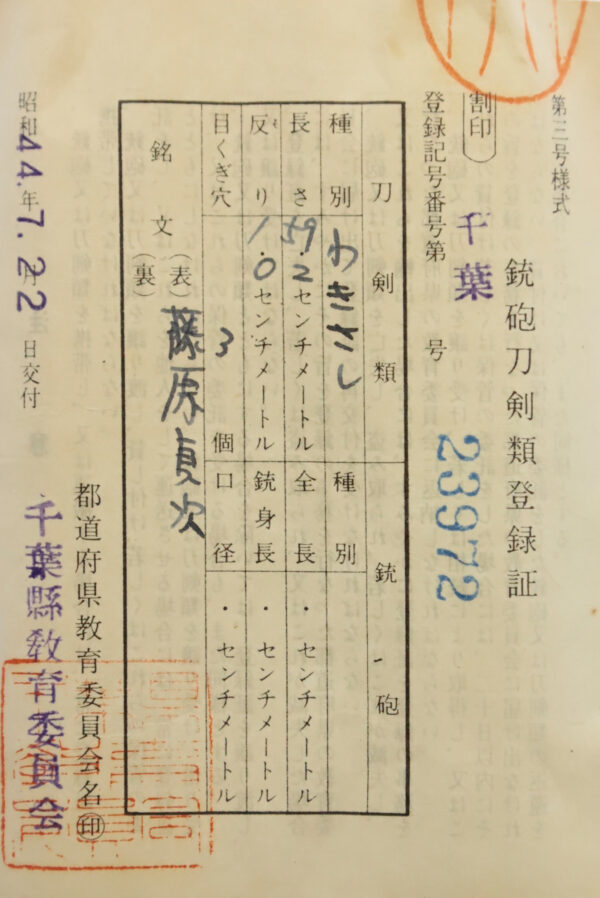 第三号様式
銃砲刀剣類登録証
割印
登録記号番号第 号
千葉
23972
刀剣類
種別 わきさし
長さ 59.2センチメートル
反り 1.0センチメートル
目くぎ穴 3個
銘文 (表) 藤原貞次
(裏)
銃砲
種別
全長 ・ センチメートル
銃身長 ・ センチメートル
口径 ・ センチメートル
昭和44年7.22日交付
都道府県教育委員会名㊞
千葉縣教育委員会